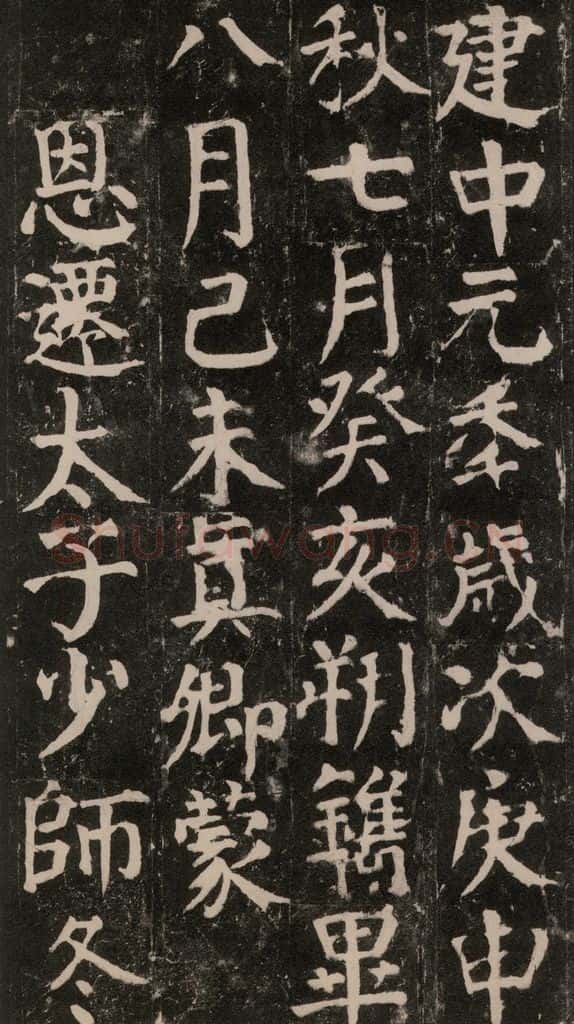 建中元年歲次庚申
秋七月癸亥朔鐫畢
八月己未真卿蒙
恩遷太子少師冬
shufawang.cn